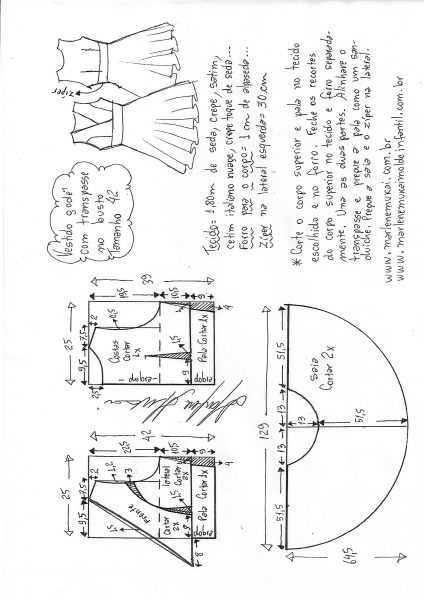 zíper
Vestido godê
com transpasse
no busto
Tamanho 42
Tecido = 1,80m de seda, crepe, cetim,
cetim italiano nuage, crepe toque de seda...
Forro para o corpo = 1 cm de
Zíper na lateral esquerda = 30 cm
* Corte o corpo superior e pala no tecido
escolhido e no forro. Feche os recortes
do corpo superior no tecido e forro separada-
mente. Una as duas partes. Alinhave o
transpasse e pregue a pala como um san-
duiche. Pregue a saia e o zíper na lateral.
www.marlenemukai.com.br
www.marlenemukaimoldeinfantil.com.br
39
19,5
10,5
9
4
25
9,5
7,5
2
0,5
2,5
Costas
Cortar
1x
dobra
1,5
9
Pala Cortar 1x
dobra
42
22,5
10,5
9
4
25
9,5
7,5
2
1,2
3
Frente
1,5
Lateral
Cortar
2x
Cortar
2x
1,5
9
Pala Cortar 1x
8
129
51,5
13
13
51,5
13
Saia
Cortar 2x
51,5
64,5